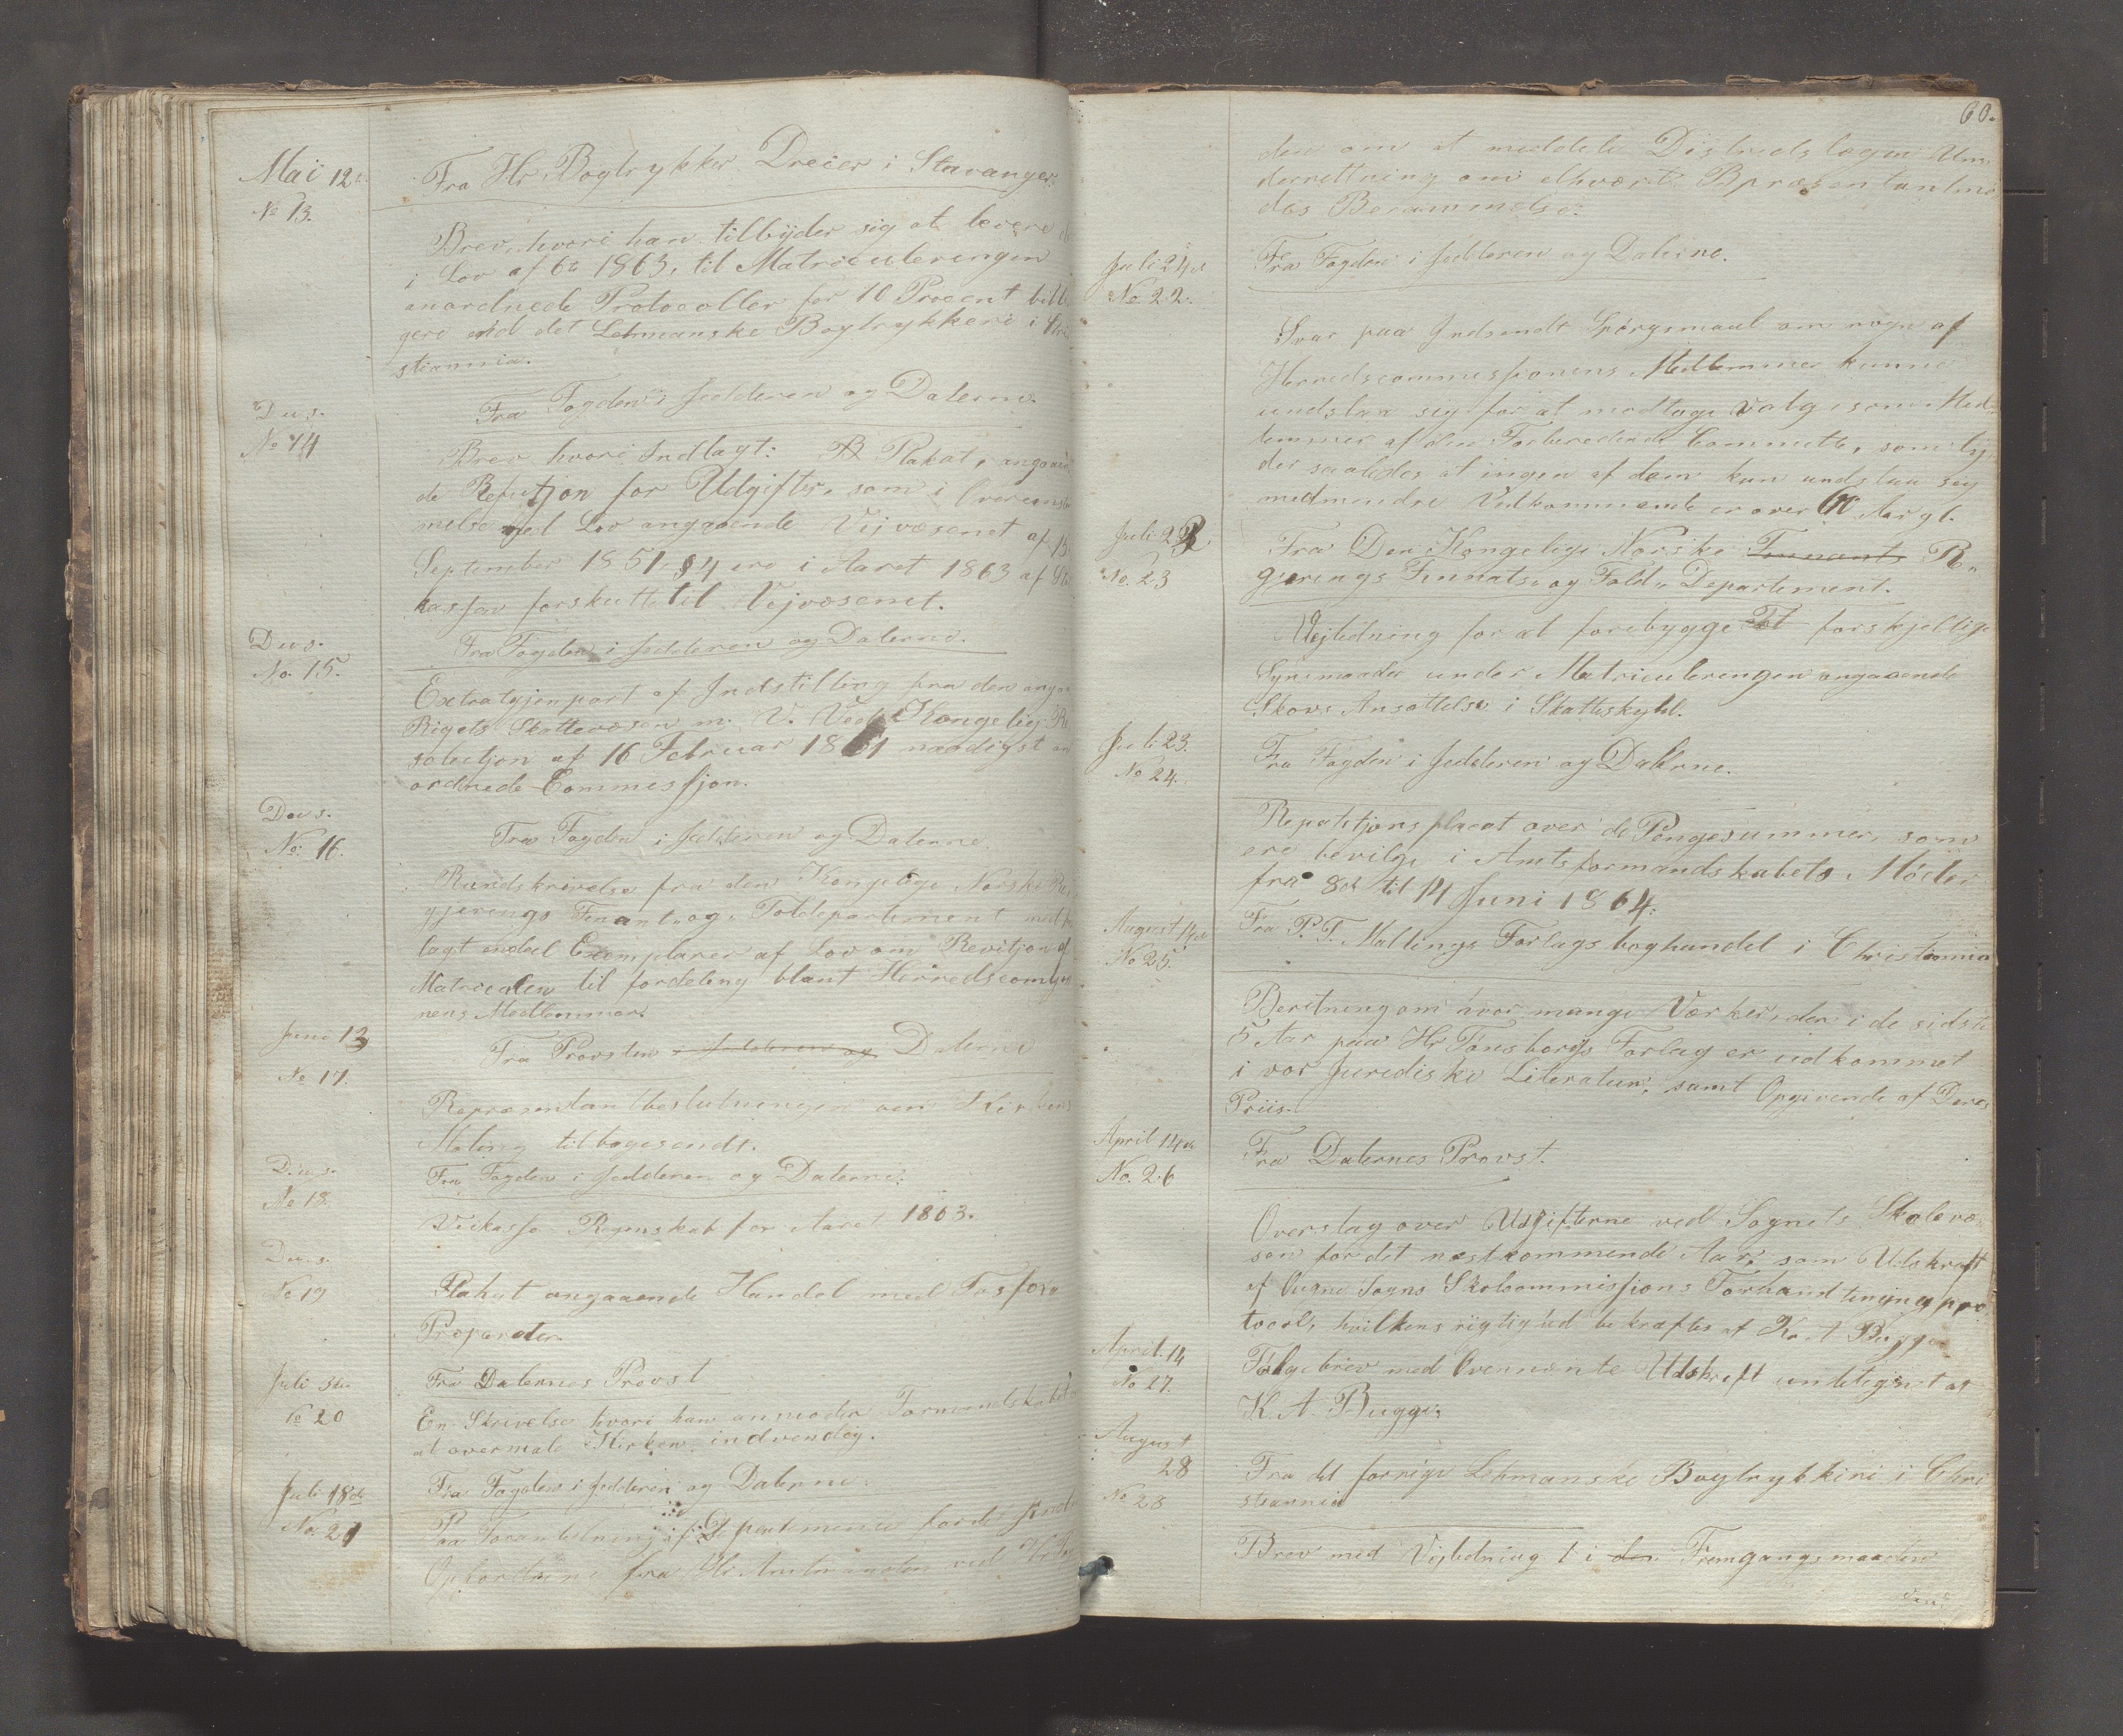 Mai 12te
No 13.
Fra Hr. Bogtrykker Dreier i Stavanger.
Brev, hvori han tilbyder sig at levere
i Lov af 6te 1863, til Matriculeringen
anordnede Protocoller for 10 Procent billi
gere end det Lehmanske Bogtrykkeri i
stiannia.
Dus.
No 14
Fra Fogden i Jedderen og Dalerne.
Brev hvori Indlagt: Plakat, angaaen
de Refutjon for Udgifter, som i Overenst
melse med Lov angaaende Vejvæsenet af 15
September 1851, § 4 ere i Aaret 1863 af
kassen forskutte til Vejvæsenet.
Dus.
No. 15.
Fra Fogden i Jedderen og Dalerne.
Extratgjenpart af Indstilling fra den anga
Rigets Skattevæsen m. V. Ved Kongelig Re
solutjon af 16 Februar 1861 naadigst an
ordnede Commessjon.
Dus.
No. 16.
Fra Fogden i Jedderen og Dalerne.
Rundskrivelse fra den Kongelige Norske Re
gjerings Finant- og Toldepartement med
lagt endeel Exemplarer af Lov om Revitjon af
Matriculen til fordeling blant Herredscomm
nens Medlemmer.
Juni 13
No 17.
Fra Provsten i Jedderen og Dalerne
Repræsentantbeslutningen om Kirkens
Maling tilbagesendt.
Dus.
No 18.
Fra Fogden i Jedderen og Dalerne.
Veikasse Regnskab for Aaret 1863.
Dus.
No 19
Plakat angaaende Handel med Fosfor
Præparater.
Juli 3te
No 20
Fra Dalernes Provst
En Skrivelse hvori han anmoder Formandskabet
at overmale Kirken indvendig.
Juli 18de
No. 21
Fra Fogden i Jedderen og Dalerne.
Paa Foranledning af Departementet for det Indre
Opfordrene fra Hr. Amtmanden ved
60.
den om at meddele Distrædslægen Un
derrettning om ethvert Repræsentantmø
des Berammelse.
Juli 24de
No. 22.
Fra Fogden i Jedderen og Dalerne.
Svar paa Indsendt Spørgsmaal om nogen af
Herredscommissionens Medlemmer kunne
undslaa sig for at modtage Valg som Med
lemmer af den Forberedende Committe, som ly
der saaledes at ingen af dem kan undslaa sig
medmindre Vedkommende er over 60 Aar gl.
Juli 22.
No. 23
Fra Den Kongelige Norske Finnants Re-
gjerings Finnats- og Told- Departement.
Vejledning for at forebygge Tot forskjellige
Synsmaader under Matriculeringen angaaende
Skovs Ansættelse i Skatteskyld.
Juli 23.
No 24.
Fra Fogden i Jedderen og Dalerne.
Repatitjonsplacat over de Pengesummer, som
ere bevilge i Amtsformandskabets Møder
fra 8de til 14 Juni 1864.
August 14de
No 25.
Fra P. T. Mallings Forlagsboghandel i Christiannia
Beretning om hvor mange Værker, der i de sidste
5 Aar paa Hr. Tønsbergs Forlag er udkommet
i vor Jurediske Literatur, samt Opgivende af Deres
Priis.
April 14de
No. 26
Fra Dalernes Provst.
Overslag over Udgifterne ved Sognets Skolevæ
sen for det næstkommende Aar, som Udskrift
af Ougne Sogns Skolcommissions Forhandlingspro
tocol, hvilkens rigtighed bekræftes af K. A Bugge
April 14
No 27.
Følgebrev med Ovennævnte Udskrift undtegnet af
K. A. Bugge.
August
28
No 28
Fra det forrige Lehmanske Bogtrykkeri i Chri
stiannia
Brev med Vejledning t i den Fremgangsmaaden